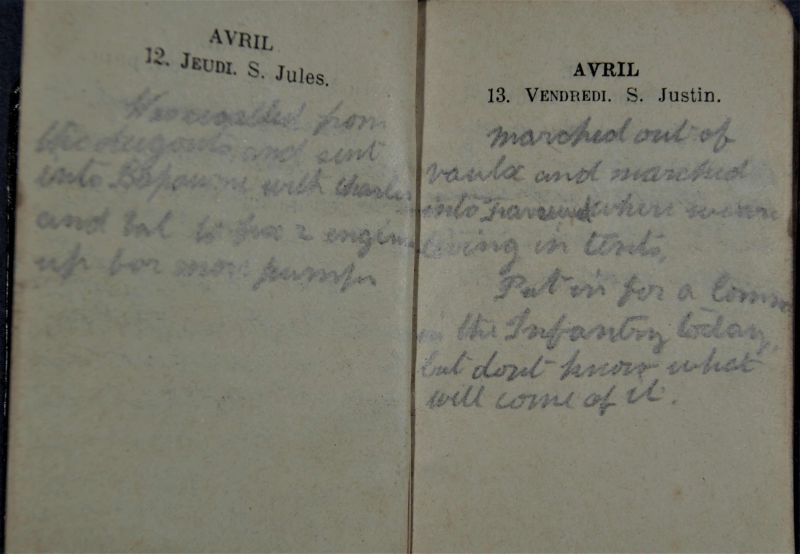 AVRIL
12. JEUDI. S. Jules.
Was recalled from
the dugouts and sent
into Bapaume with Charlie
and Val to fix 2 engines
up for mon pumps
AVRIL
13. VENDREDI. S. Justin.
marched out of
vaulx and marched
into where we are
living in tents,
Put in for a Comm
in the Infantry today,
but dont know what
will come of it.